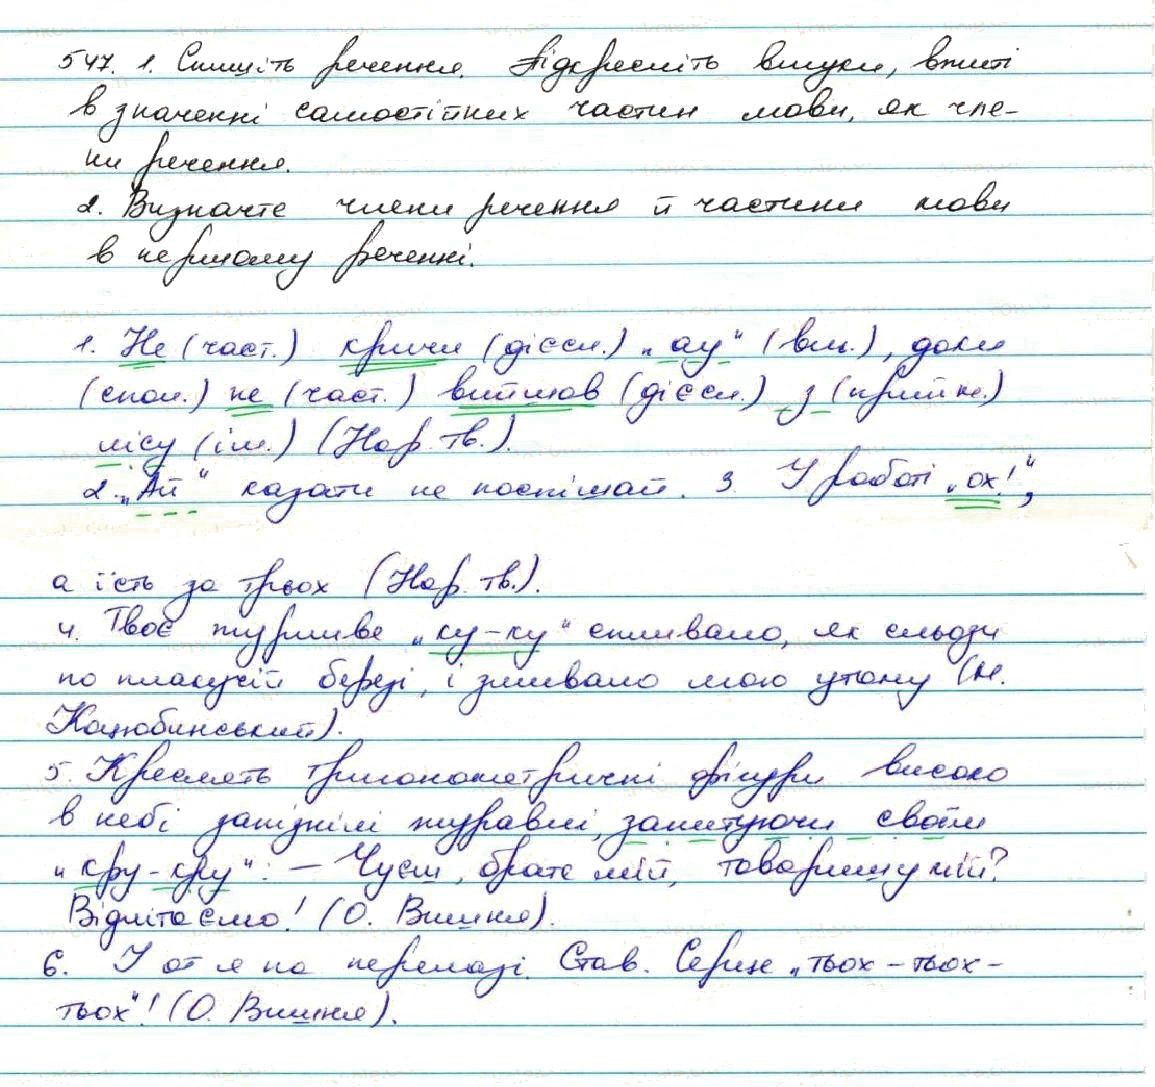 547. 1. Спишіть речення. Підкресліть вигуки, вжиті
в значенні самостійних частин мови, як чле-
ни речення.
2. Визначте члени речення й частини мови
в першому реченні.
1. Не (част.) кричи (дієсл.) „ау" (виг.), доки
(спол.) не (част.) вийшов (дієсл.) з (прийм.)
лісу (ім.) (Нар. тв.).
2. „Ай" казати не поспішай. 3. У роботі „ох!",
а їсть за трьох (Нар. тв.).
4. Твоє журливе „ку-ку" спливало, як сльози
по плакучій березі, і змивало мою утому (М.
Коцюбинський).
5. Креслять тригонометричні фігури високо
в небі запізнілі журавлі, запитуючи своїм
„кру-кру": – Чуєш, брате мій, товаришу мій?
Відлітаємо! (О. Вишня).
6. І от я на перелазі. Став. Серце „тьох-тьох-
тьох"! (О. Вишня).